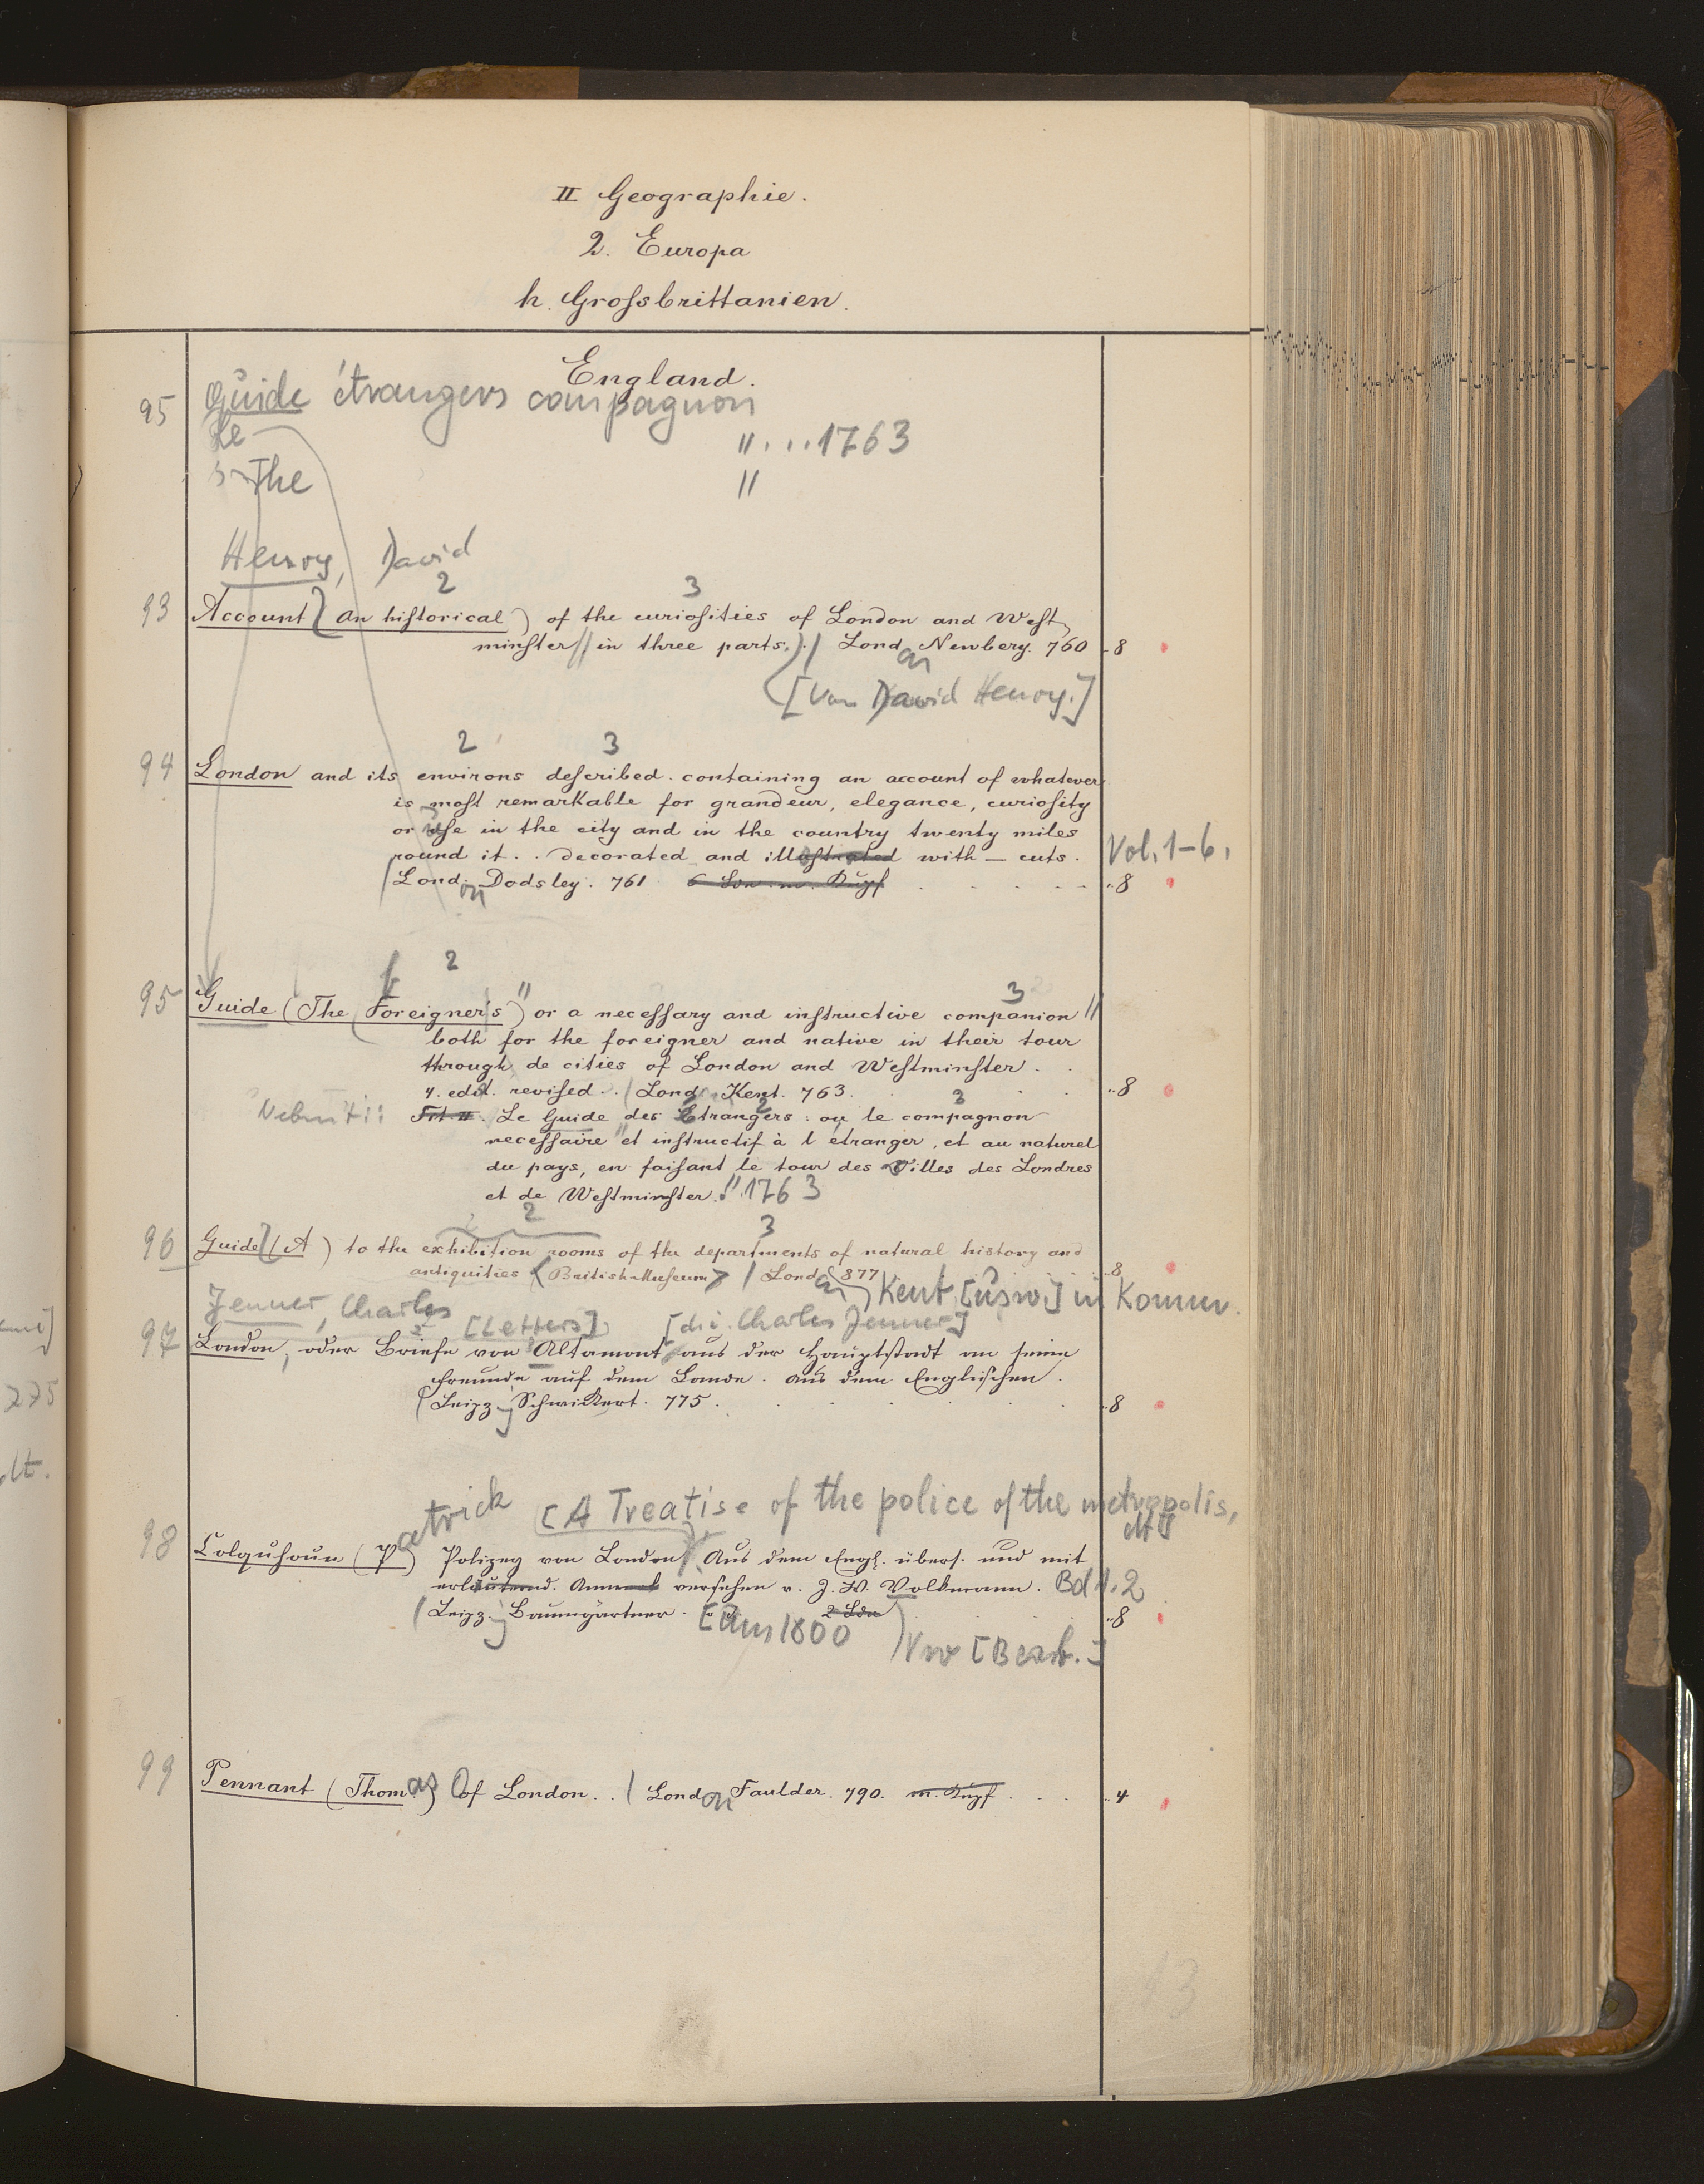 II Geographie.
2. Europa
h. Grossbrittanien.
England.
95 Guide étrangers compagnon
Le " ...1763
s The "
Henry, David
2 3
93 Account (An historical) of the curiosities of London and West
minster // in three parts.) / London Newbery. 760 8
[Von David Henry.]
2 3
94 London and its environs described. containing an account of whatever
is most remarkable for grandeur, elegance, curiosity
or use in the city and in the country twenty miles
round it. . decorated and illustrated with — cuts. Vol. 1-6.
/ London Dodsley. 761 6 Bde m. Kupf 8
f 2 3
95 Guide (The Foreigner's) or a necessary and instructive companion //
both for the foreigner and native in their tour
through de cities of London and Westminster.
4. edit. revised. / Lond. Kent. 763. 8
Nebenti: Tit. II. Le Guide des Etrangers: ou le compagnon
necessaire et instructif à l'étranger, et au naturel
du pays, en faisant le tour des Villes des Londres
et de Westminster. 1763
2 3
96 Guide (A) to the exhibition rooms of the departments of natural history and
antiquities (British Museum) / London 877 8
Kent [usw.] in Komm.
Jenner, Charles [Letters] [d. i. Charles Jenner]
97 London, oder Briefe von Altamont aus der Hauptstadt an seine
Freunde auf dem Lande. Aus dem Englischen.
(Leipz. Schwickert. 775. 8
atrick [A Treatise of the police of the metropolis,
98 Colquhoun (P) Polizey von London. Aus dem Engl. übers. und mit
erläuternd. Anmerk versehen v. J. W. Volkmann. Bd 1. 2
(Leipz. Baumgärtner. 2 Bde 8
[um 1800 Vw [Bearb.]
99 Pennant (Thomas) Of London. . / London Faulder. 790. m. Kupf 4